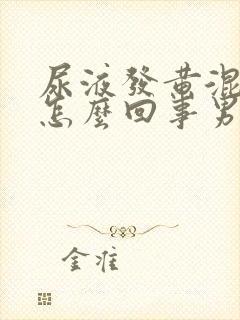 尿液發黃混
怎麼回事男
金准